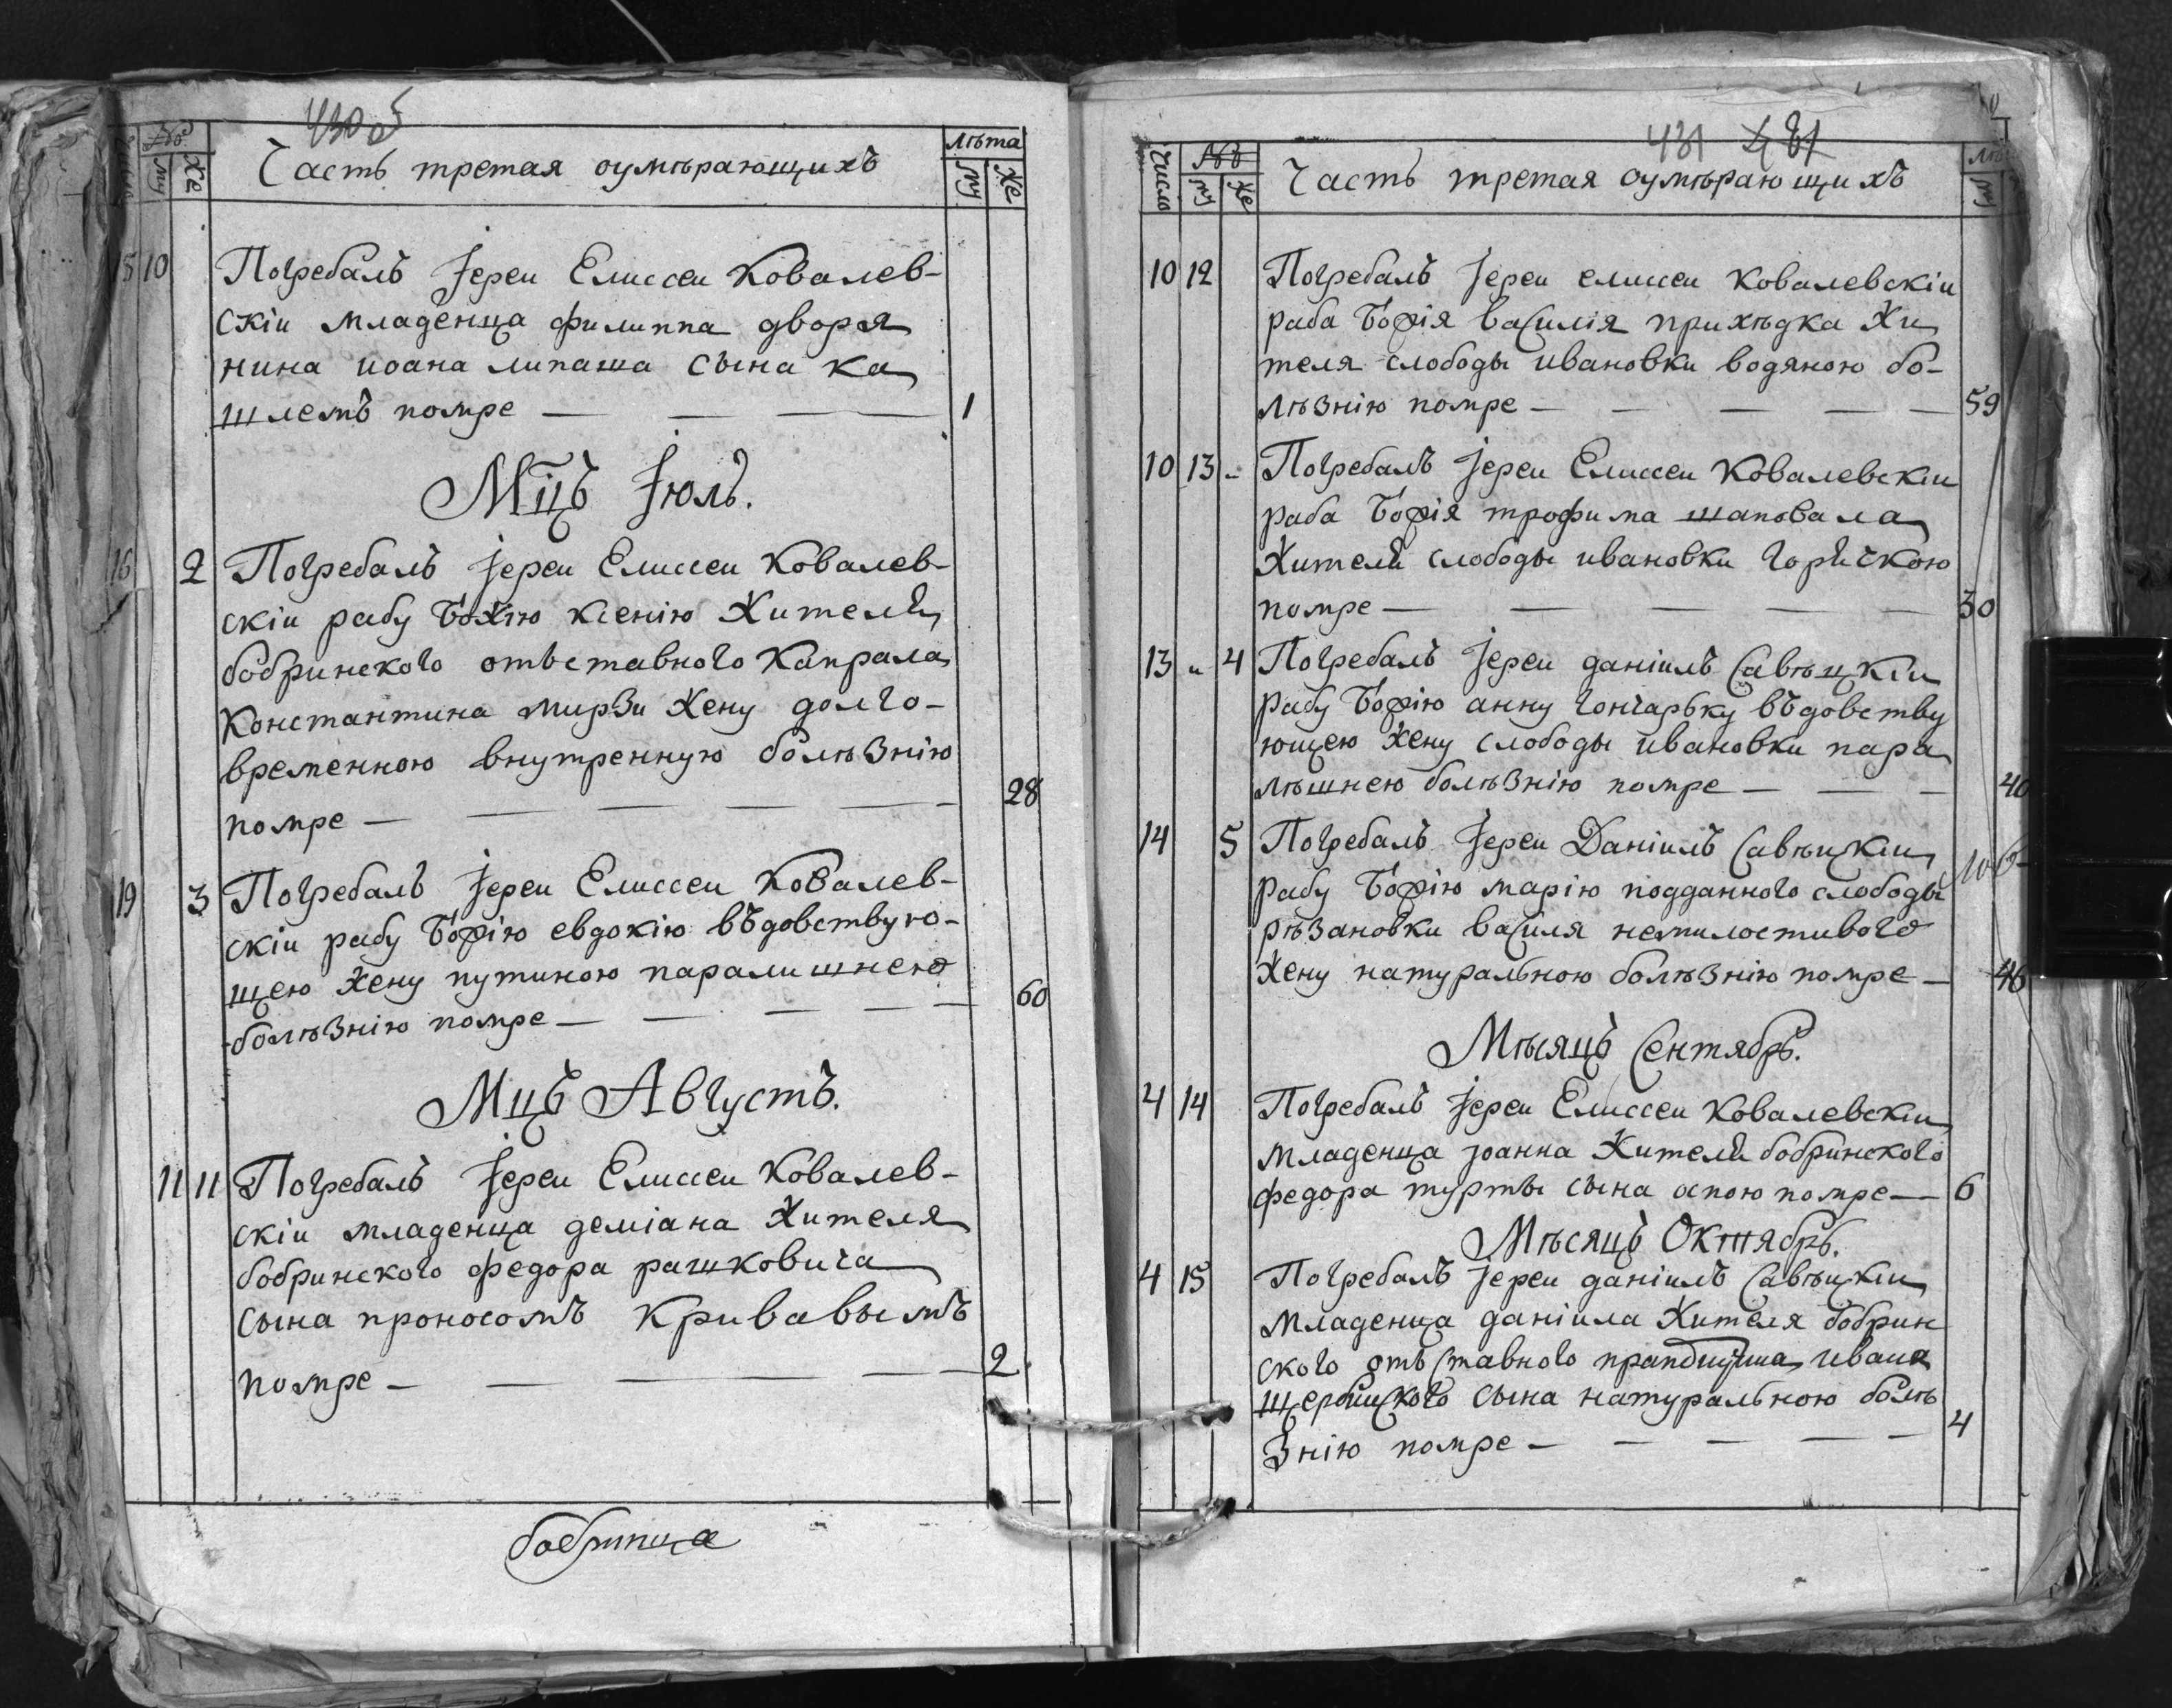 430 об
№ Часть третая оумѣрающихъ лѣта
му же му же
15 10 Погребалъ Іереи Елиссеи Ковалев-
скіи младенца филиппа дворя
нина иоана липаша сына ка
шлемъ помре — — — 1
Мцъ Іюль.
16 2 Погребалъ Іереи Елиссеи Ковалев-
скіи рабу Божію ксенію Жителя
бобринского отъставного Капрала
Константина мирзи Жену долго-
временною внутренную болѣзнію
помре — — — — — 28
19 3 Погребалъ Іереи Елиссеи Ковалев-
скіи рабу Божію евдокію въдовствую-
щею Жену путиною паралишнею
болѣзнію помре — — — — — 60
Мцъ Августъ.
11 11 Погребалъ Іереи Елиссеи Ковалев-
скіи младенца деміана Жителя
бобринского федора рашковича
сына проносомъ Кривавымъ
помре — — — — — 2
бобринца
431
Число № Часть третая оумѣрающихъ
му же му
10 12 Погребалъ Іереи елиссеи Ковалевскіи
раба Божія василія прихѣдка Жи
теля слободы ивановки водяною бо-
лѣзнію помре — — — — — 59
10 13 - Погребалъ Іереи Елиссеи Ковалевскіи
раба Божія трофима шаповала
Жителя слободы ивановки горячкою
помре — — — — — 30
13 - 4 Погребалъ Іереи даніилъ Савѣцкіи
рабу Божію анну гончарьку въдовству
ющею Жену слободы ивановки пара
лѣшнею болѣзнію помре — — — 40
14 5 Погребалъ Іереи Даніилъ Савѣцкіи
рабу Божію марію подданного слободы
рѣзановки василя немилостивого
Жену натуральною болѣзнію помре — 46
Мѣсяцъ Сентябрь.
4 14 Погребалъ Іереи Елиссеи Ковалевскіи
младенца іоанна Жителя бобринского
федора турты сына оспою помре — 6
Мѣсяцъ Октябрь.
4 15 Погребалъ Іереи даніилъ Савѣцкіи
младенца даніила Жителя бобрин
ского отъставного ивана
щербицкого сына натуральною болѣ
знію помре — — — — — 4